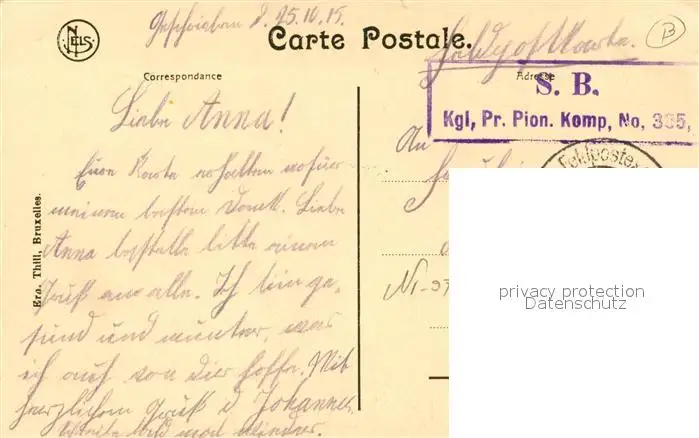 NELS
Geschrieben d. 25.10.15.
Carte Postale.
Feldpostkarte.
B
Correspondance
Adresse
S. B.
Kgl, Pr. Pion. Komp, No, 335,
Liebe Anna!
An
Feldpostex
Eure Karte erhalten wofür
meinen besten Dank. Liebe
Anna bestelle bitte einen
Gruß an alle. Ich bin ge-
sund und munter, was
ich auch von dir hoffe. Mit
herzlichem Gruß d Johannes
Schreibe bald mal wieder.
Nr-
Ern. Thill, Bruxelles.
privacy protection
Datenschutz